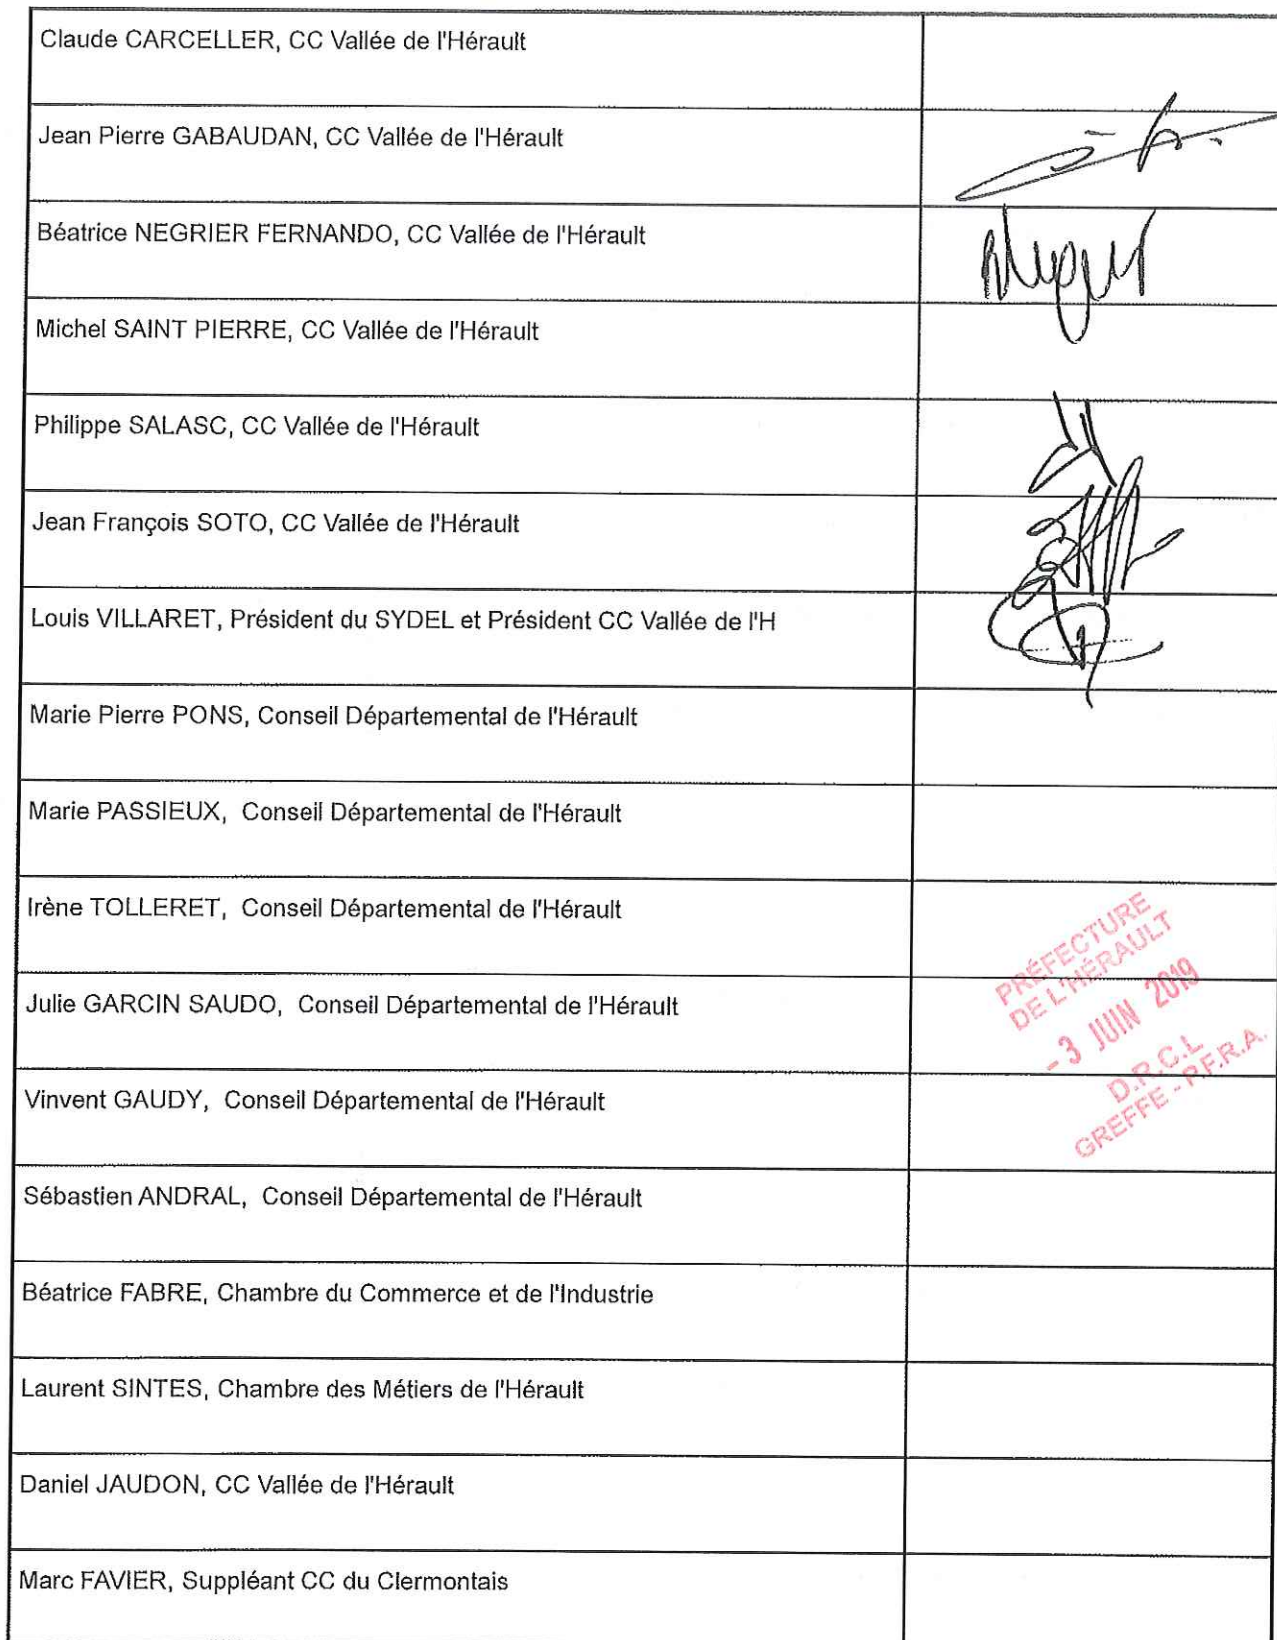 Claude CARCELLER, CC Vallée de l'Hérault
Jean Pierre GABAUDAN, CC Vallée de l'Hérault
Béatrice NEGRIER FERNANDO, CC Vallée de l'Hérault
Michel SAINT PIERRE, CC Vallée de l'Hérault
Philippe SALASC, CC Vallée de l'Hérault
Jean François SOTO, CC Vallée de l'Hérault
Louis VILLARET, Président du SYDEL et Président CC Vallée de l'H
Marie Pierre PONS, Conseil Départemental de l'Hérault
Marie PASSIEUX, Conseil Départemental de l'Hérault
Irène TOLLERET, Conseil Départemental de l'Hérault
Julie GARCIN SAUDO, Conseil Départemental de l'Hérault
PRÉFECTURE
DE L'HÉRAULT
- 3 JUIN 2019
D.R.C.L
GREFFE - P.F.R.A.
Vinvent GAUDY, Conseil Départemental de l'Hérault
Sébastien ANDRAL, Conseil Départemental de l'Hérault
Béatrice FABRE, Chambre du Commerce et de l'Industrie
Laurent SINTES, Chambre des Métiers de l'Hérault
Daniel JAUDON, CC Vallée de l'Hérault
Marc FAVIER, Suppléant CC du Clermontais